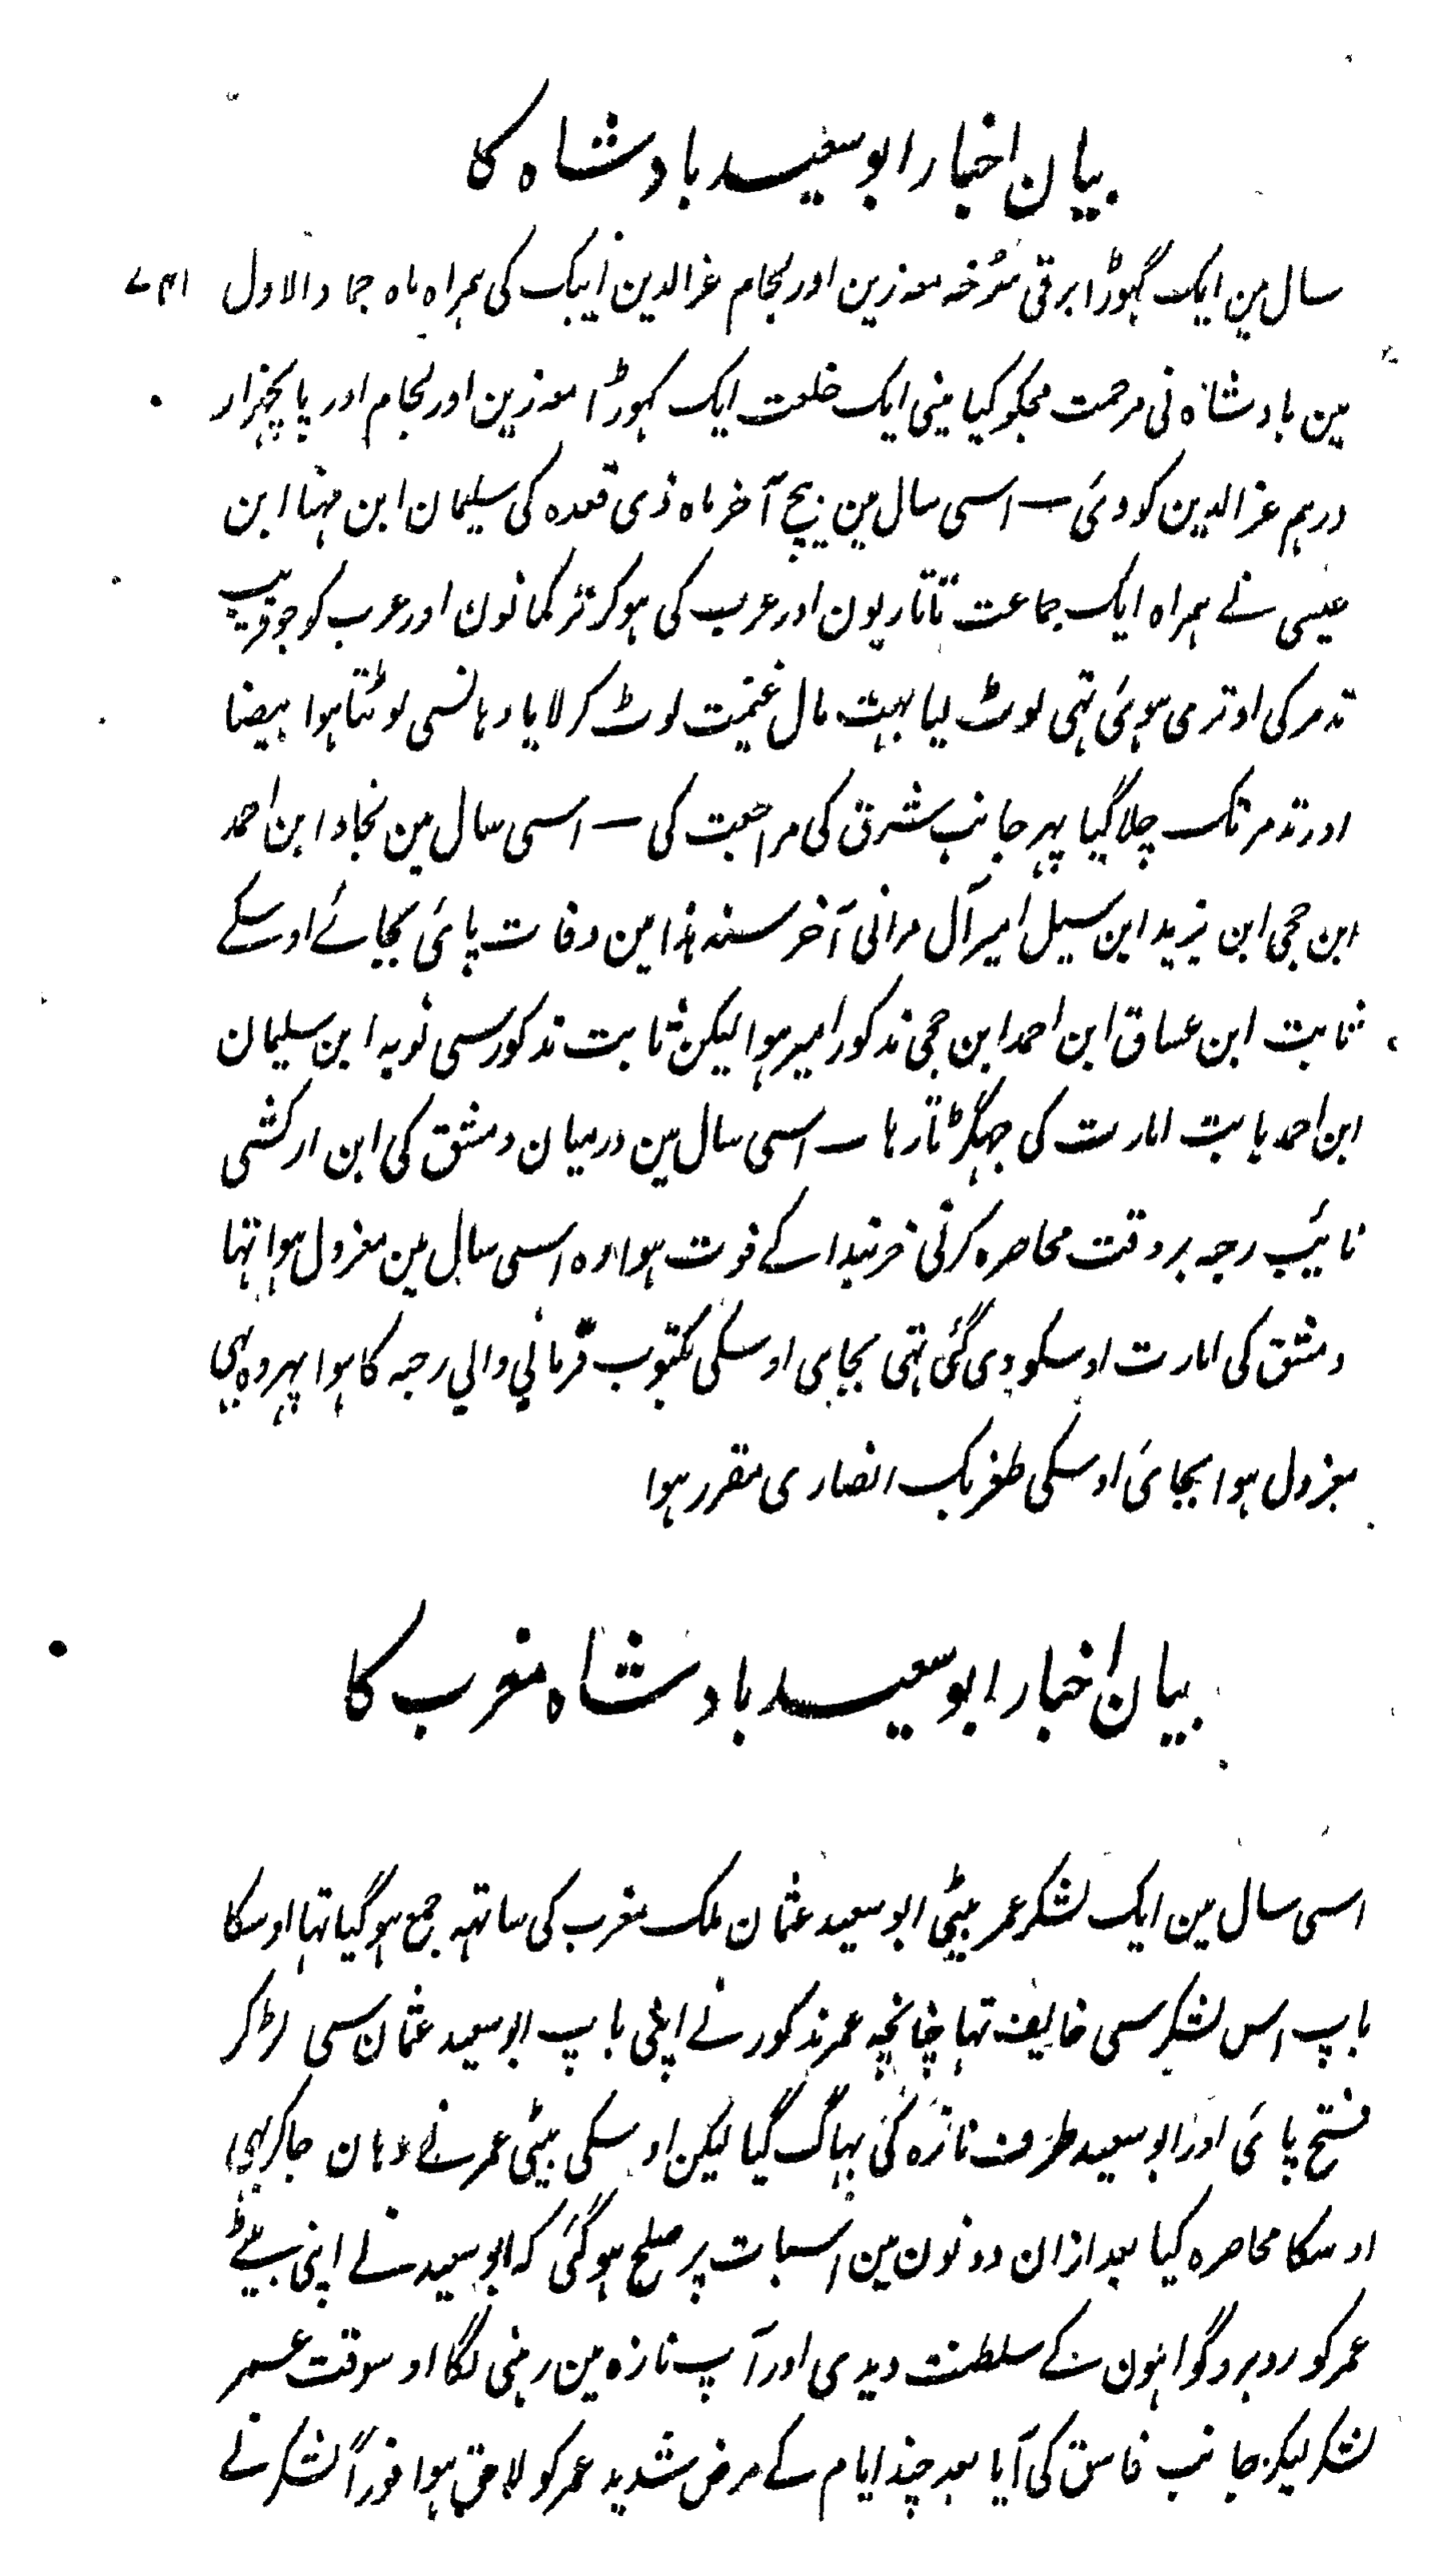 بیان اخبار ابوسعید بادشاہ کا
سال مین ایک گہوڑا برقی سُرخہ معہ زین اور لجام عزالدین ایبک کی ہمراہ ماہ جمادالاول ۷۳۱
مین بادشاہ نی مرحمت مجکو کیا مینی ایک خلعت ایک گہوڑا معہ زین اور لجام اور پانچہزار
درہم عزالدین کو دئی — اسی سال مین بیچ آخر ماہ ذی قعدہ کی سلیمان ابن مہنا ابن
عیسی نے ہمراہ ایک جماعت تاتاریون اور عرب کی ہوکر ترکمانون اور عرب کو جو قریب
تدمر کی اوتری ہوئی تہی لوٹ لیا بہت مال غنیمت لوٹ کر لایا وہانسی لوٹتا ہوا بیضا
اور تدمر تک چلا گیا پہر جانب شرق کی مراجعت کی — اسی سال مین نجاد ابن احمد
ابن حجی ابن یزید ابن سیل امیر آل مرانی آخر سنہ ہذا مین وفات پائی بجائے اوسکے
ثابت ابن عساق ابن احمد ابن حجی مذکور امیر ہوا لیکن ثابت مذکور سی نوبہ ابن سلیمان
ابن احمد بابت امارت کی جہگڑتا رہا — اسی سال مین درمیان دمشق کی ابن ارکشی
نائب رحبہ بر وقت محاصرہ کرنی خربندا کے فوت ہوا وہ اسی سال مین معزول ہوا تہا
دمشق کی امارت اوسکو دی گئی تہی بجای اوسکی مکتوب قرمانی والی رحبہ کا ہوا پہر وہ بہی
معزول ہوا بجائی اوسکی طغربک انصاری مقرر ہوا
بیان اخبار ابوسعید بادشاہ مغرب کا
اسی سال مین ایک لشکر عمر بیٹی ابو سعید عثمان ملک مغرب کی ساتہہ جمع ہوگیا تہا اوسکا
باپ اس لشکر سی خایف تہا چنانچہ عمر مذکور نے اپنی باپ ابو سعید عثمان سی لڑکر
فتح پائی اور ابو سعید طرف تازہ کی بہاگ گیا لیکن اوسکی بیٹی عمر نے وہان جاکر بہی
اوسکا محاصرہ کیا بعد ازان دونون مین اسبات پر صلح ہوگئی کہ ابو سعید نے اپنی بیٹے
عمر کو روبرو گواہون کے سلطنت دیدی اور آپ تازہ مین رہنی لگا اوسوقت عمر
لشکر لیکر جانب فاس کی آیا بعد چند ایام کے مرض شدید عمر کو لاحق ہوا فوراً لشکر نے